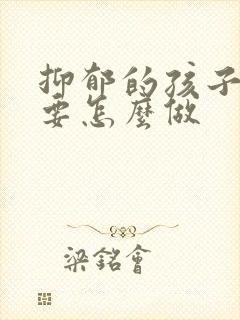 抑郁的孩子
要怎麼做
梁銘會